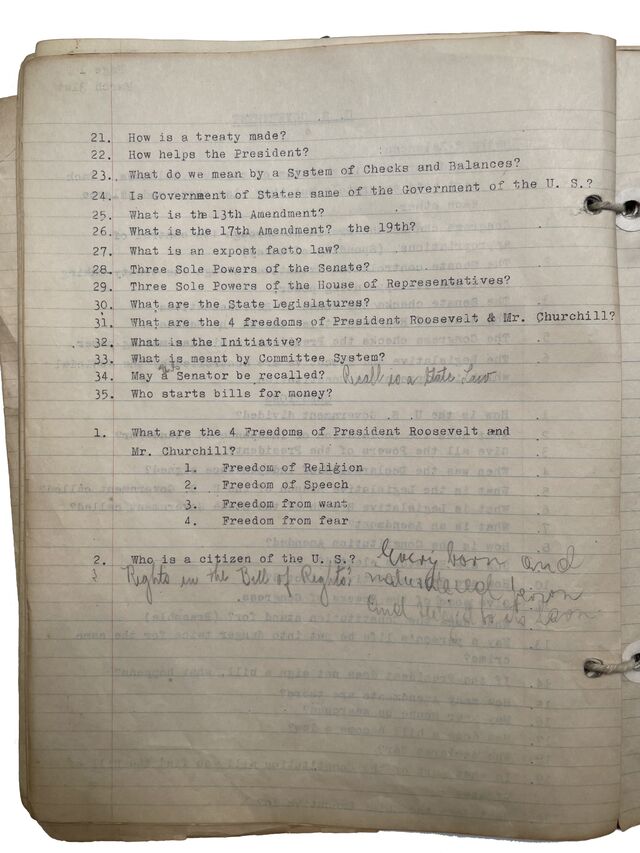 21. How is a treaty made?
22. How helps the President?
23. What do we mean by a System of Checks and Balances?
24. Is Government of States same of the Government of the U. S.?
25. What is the 13th Amendment?
26. What is the 17th Amendment? the 19th?
27. What is an expost facto law?
28. Three Sole Powers of the Senate?
29. Three Sole Powers of the House of Representatives?
30. What are the State Legislatures?
31. What are the 4 freedoms of President Roosevelt & Mr. Churchill?
32. What is the Initiative?
33. What is meant by Committee System?
34. May a Senator be recalled? Recall is a State Law
35. Who starts bills for money?
1. What are the 4 Freedoms of President Roosevelt and
Mr. Churchill?
1. Freedom of Religion
2. Freedom of Speech
3. Freedom from want
4. Freedom from fear
2. Who is a citizen of the U. S.? Every born and
Rights in the Bill of Rights? person
to its